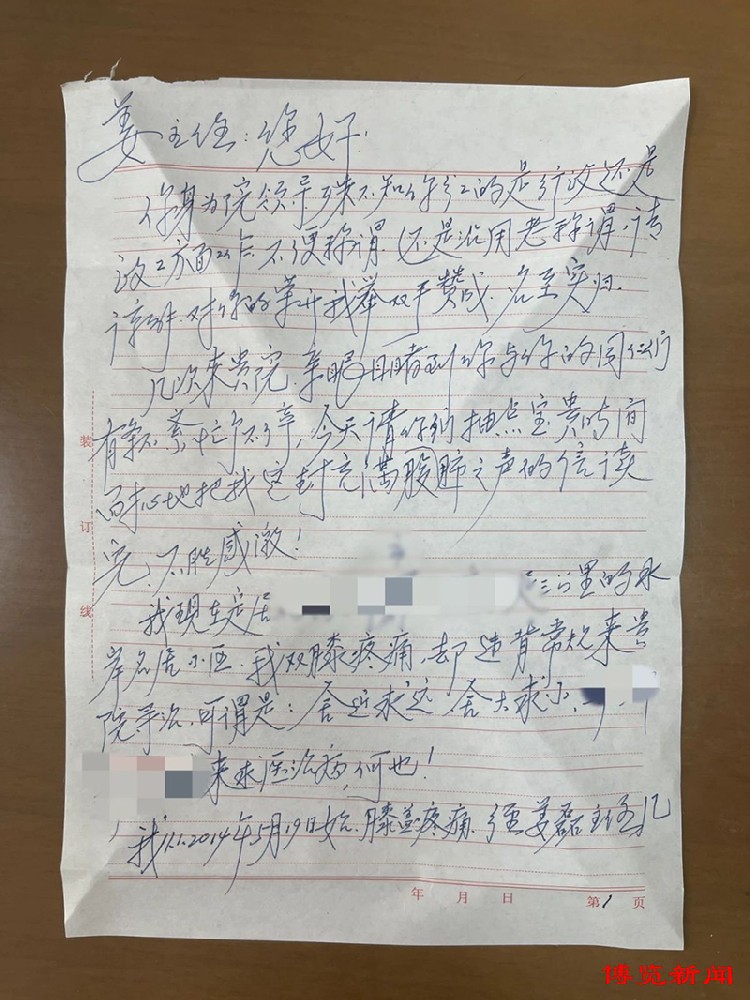 姜主任:您好.
你身为院领导,我不知你分工的是行政还是
政工方面工作.不便称谓.还是沿用老称谓.请
谅解.对你的晋升我举双手赞成.名至实归.
几次来贵院.亲眼目睹到你与你的同仁们
有条不紊忙个不停,今天请你们抽点宝贵时间
耐心地把我这封充满肺腑之声的信读
完,不胜感激!
我现在是居 三公里的水
岸名居小区.我双膝疼痛,却违背常规来贵
院求治,可谓是:舍近求远 舍大求小,
来求医治病,何也!
我从2014年5月19日始.膝盖疼痛.经姜磊主任几
装
订
线
年 月 日 第1页
博览新闻